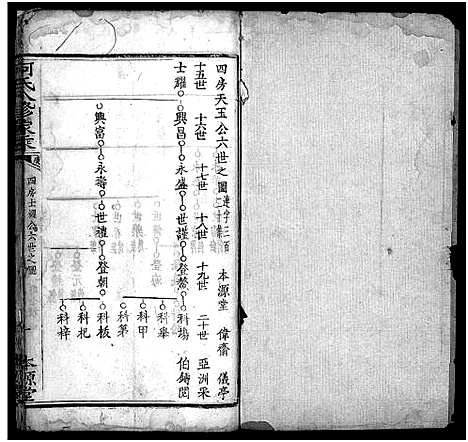 四房天玉公六世之圖 連字三百二十集 本源堂 偉齋 儀亭
十五世 十六世 十七世 十八世 十九世 二十世 亞洲采
士耀 興昌 永盛 世謹 登喬 科場 伯鑄閱
科舉
科甲
科第
興富 永壽 世禮 登朝 科板
科杷
科梓
何氏八修家乘
四房士耀公六世之圖
本源堂